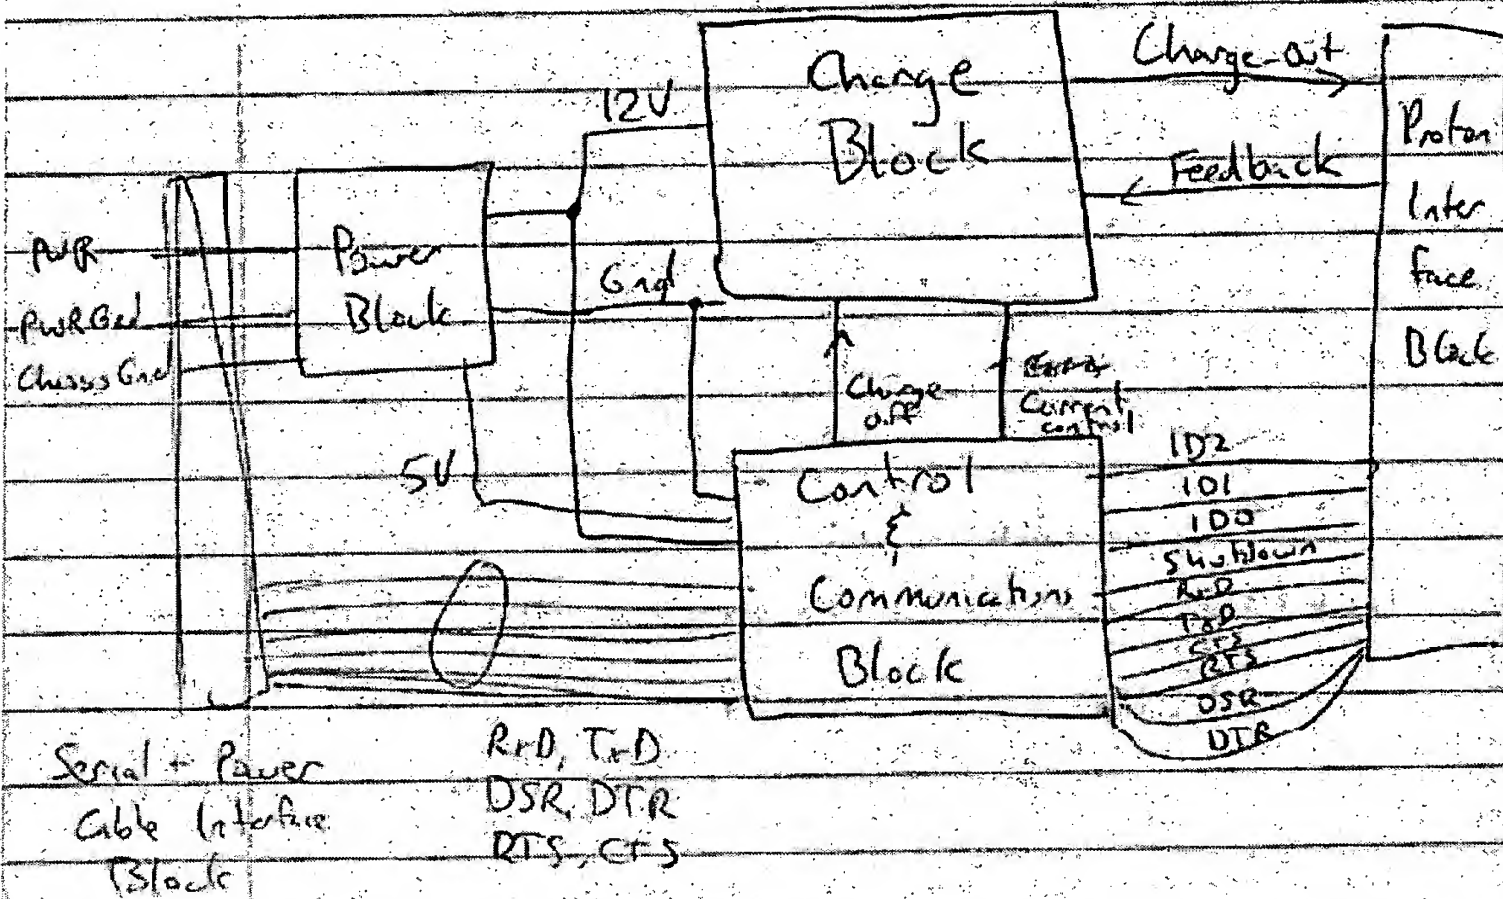 Charge
Block
Charge-out
12V
Feedback
Proton
Inter
face
Block
PWR
PWRGnd
Chassis Gnd
Power
Block
Gnd
5V
Charge
off
Current
control
Control
&
Communications
Block
ID2
ID1
ID0
Shutdown
RxD
TxD
CTS
RTS
DSR
DTR
Serial + Power
Cable Interface
Block
RxD, TxD
DSR, DTR
RTS, CTS